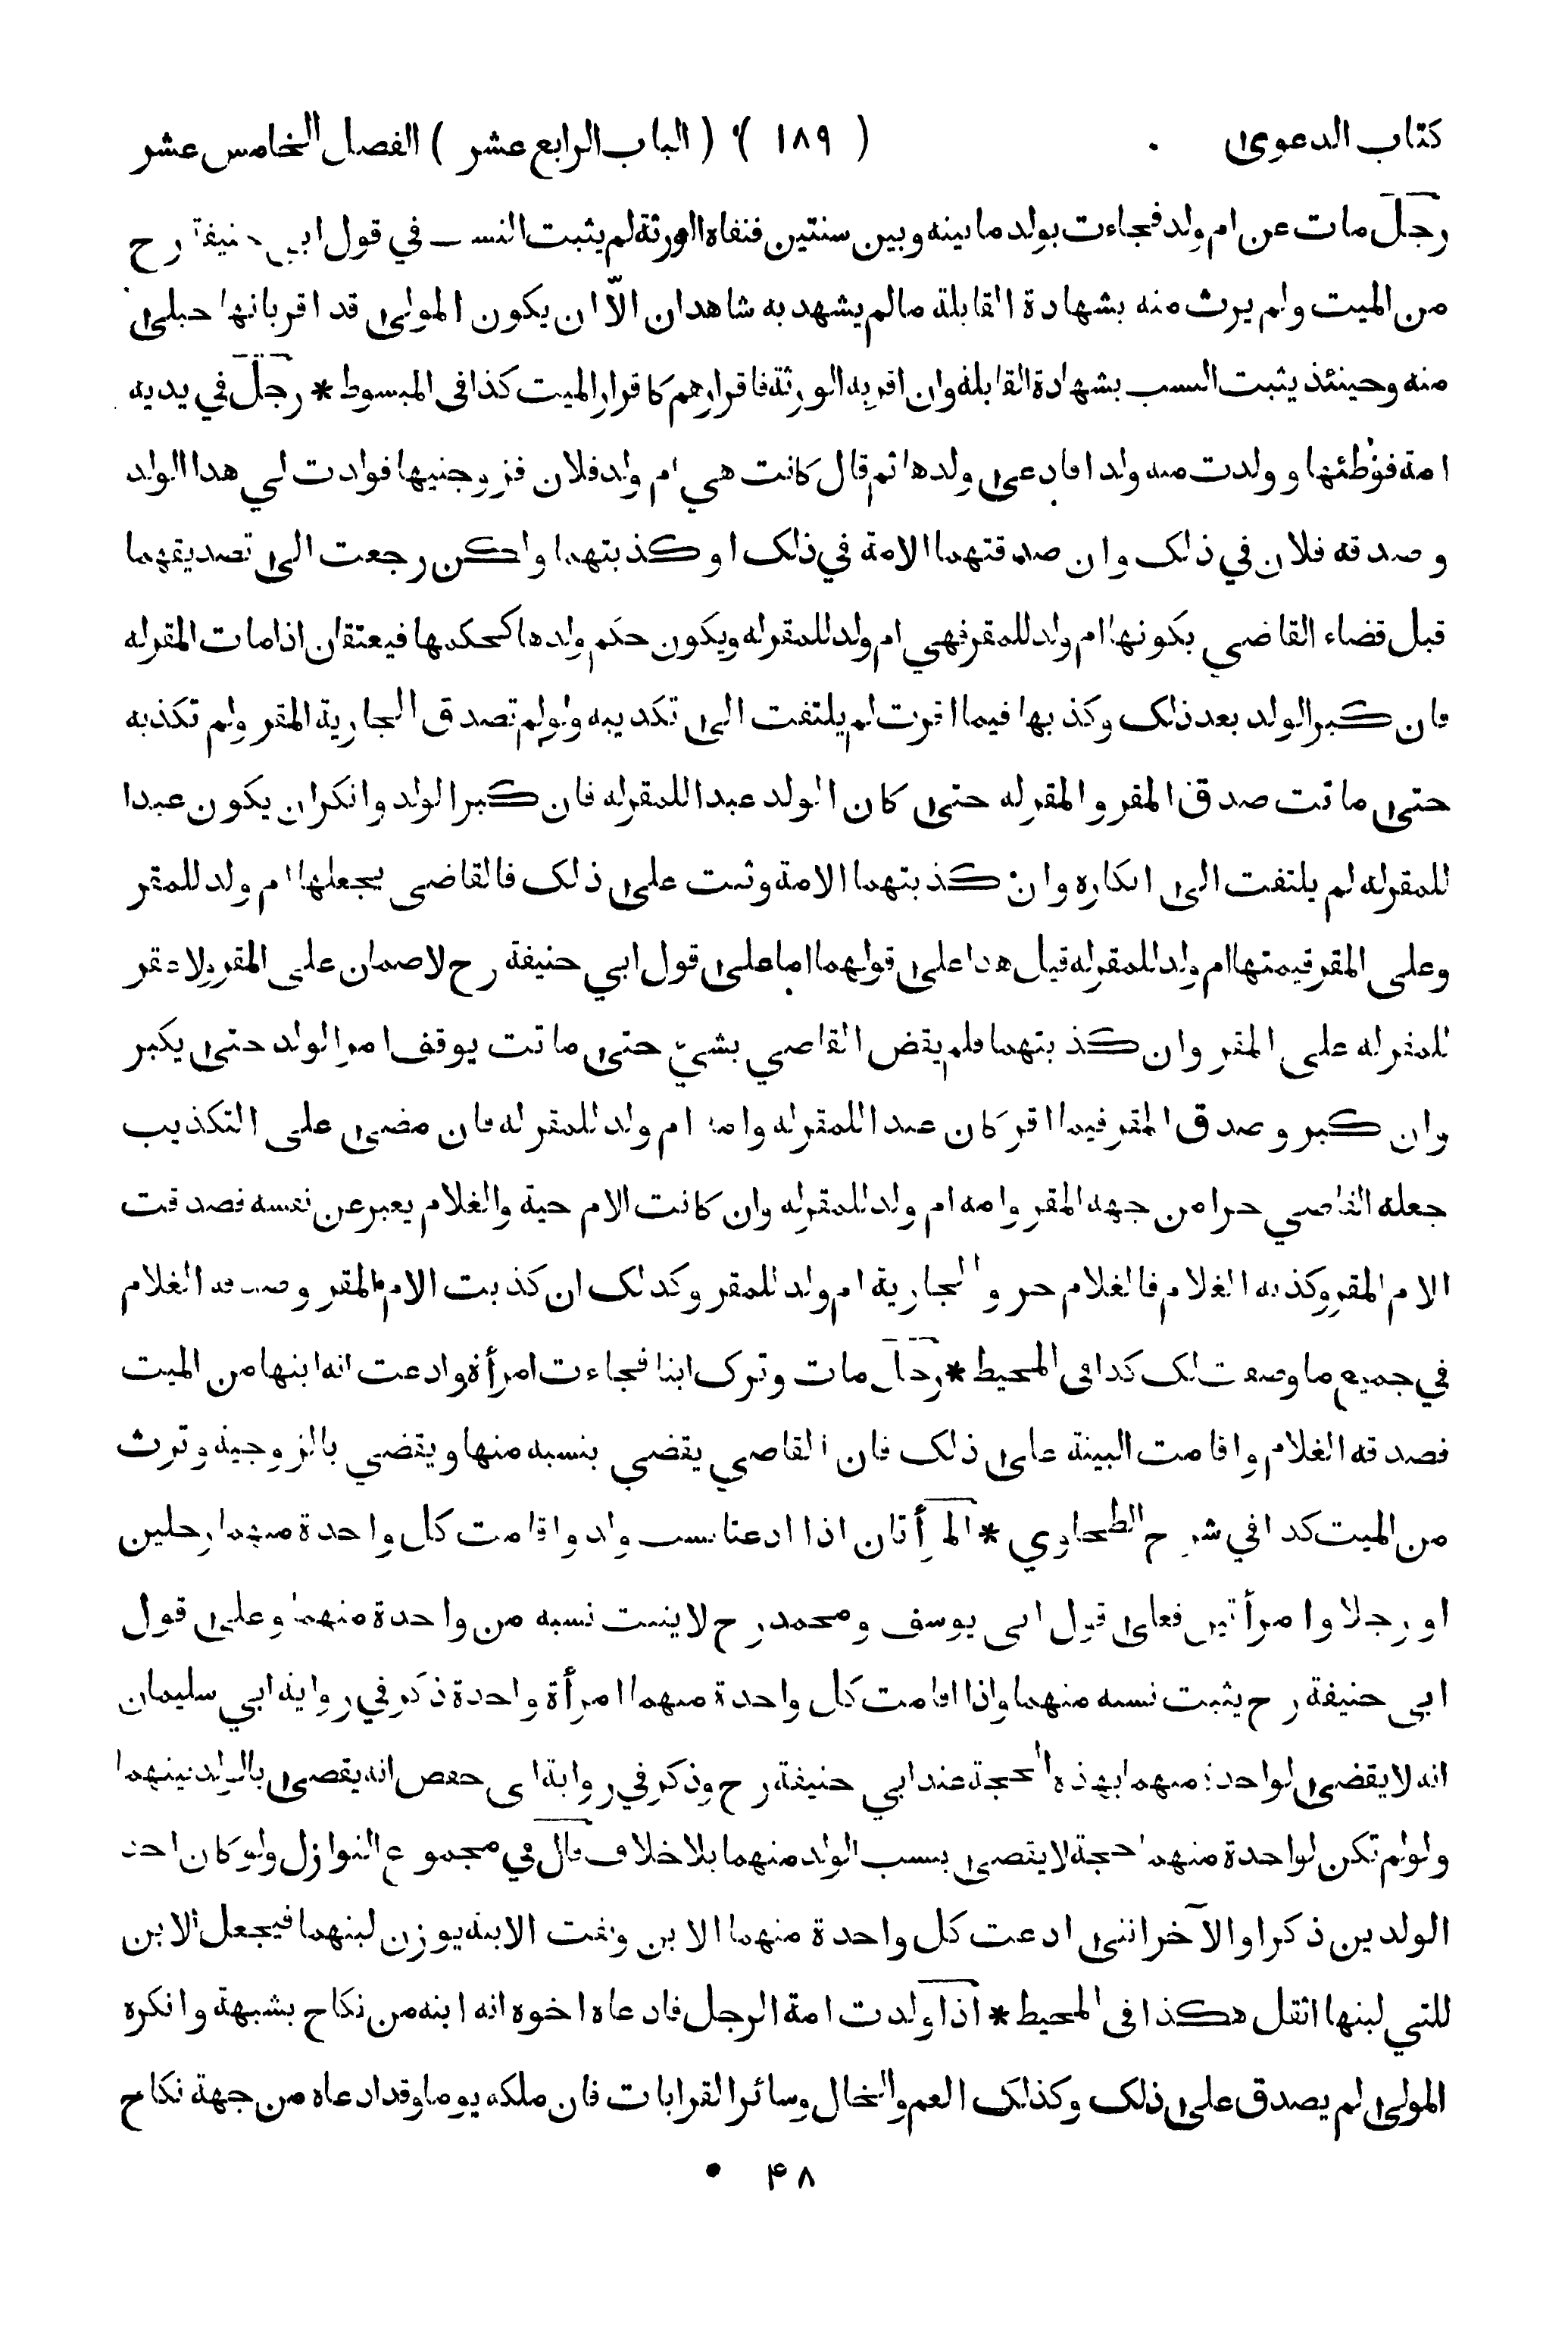 كتاب الدعوى ( ١٨٩ ) ( الباب الرابع عشر ) الفصل الخامس عشر
رجل مات عن ام ولد فجاءت بولد ما بينه وبين سنتين فنفاه الورثة لم يثبت النسب في قول ابي حنيفة رح
من الميت ولم يرث منه بشهادة القابلة مالم يشهد به شاهدان الّا ان يكون المولى قد اقر بانها حبلى
منه وحينئذ يثبت النسب بشهادة القابلة وان اقربه الورثة فاقرارهم كاقرار الميت كذا في المبسوط * رجل في يديه
امة فوطئها وولدت منه ولدا فادعى ولدها ثم قال كانت هي ام ولد فلان فزوجنيها فولدت لي هذا الولد
وصدقه فلان في ذلك وان صدقتهما الامة في ذلك او كذبتهما ولكن رجعت الى تصديقهما
قبل قضاء القاضي بكونها ام ولد للمقر فهي ام ولد للمقرله ويكون حكم ولدها كحكمها فيعتقان اذا مات المقرله
فان كبر الولد بعد ذلك وكذبها فيما اقرت لم يلتفت الى تكذيبه ولو لم تصدق الجارية المقر ولم تكذبه
حتى ماتت صدق المقر والمقرله حتى كان الولد عبدا للمقرله فان كبر الولد وانكر ان يكون عبدا
للمقرله لم يلتفت الى انكاره وان كذبتهما الامة وثبت على ذلك فالقاضى يجعلها ام ولد للمقر
وعلى المقر قيمتها ام ولد للمقرله قيل هذا على قولهما اما على قول ابي حنيفة رح لا ضمان على المقر ولا عقر
للمقرله على المقر وان كذبتهما فلم يقض القاضي بشيء حتى ماتت يوقف امر الولد حتى يكبر
وان كبر وصدق المقر فيما اقر كان عبدا للمقرله وامه ام ولد للمقرله فان مضى على التكذيب
جعله القاضي حرا من جهة المقر وامه ام ولد للمقرله وان كانت الام حية والغلام يعبر عن نفسه فصدقت
الام المقر وكذبه الغلام فالغلام حر والجارية ام ولد للمقر وكذلك ان كذبت الام المقر وصدقه الغلام
في جميع ما وصفت لك كذا في المحيط * رجل مات وترك ابنا فجاءت امرأة وادعت انه ابنها من الميت
فصدقه الغلام واقامت البينة على ذلك فان القاضي يقضي بنسبه منها ويقضي بالزوجية وترث
من الميت كذا في شرح الطحاوي * المرأتان اذا ادعتا نسب ولد واقامت كل واحدة منهما رجلين
او رجلا وامرأتين فعلى قول ابي يوسف ومحمد رح لا يثبت نسبه من واحدة منهما وعلى قول
ابي حنيفة رح يثبت نسبه منهما واذا اقامت كل واحدة منهما امرأة واحدة ذكر في رواية ابي سليمان
انه لا يقضى لواحدة منهما بهذه الحجة عند ابي حنيفة رح وذكر في رواية ابي حفص انه يقضى بالولد بينهما
ولو لم تكن لواحدة منهما حجة لا يقضى بنسب الولد منهما بلا خلاف قال في مجموع النوازل ولو كان احد
الولدين ذكرا والآخر انثى ادعت كل واحدة منهما الابن ونفت الابنة يوزن لبنهما فيجعل الابن
للتي لبنها اثقل هكذا في المحيط * اذا ولدت امة الرجل فادعاه اخوه انه ابنه من نكاح بشبهة وانكره
المولى لم يصدق على ذلك وكذلك العم والخال وسائر القرابات فان ملكه يوما وقد ادعاه من جهة نكاح
۴۸